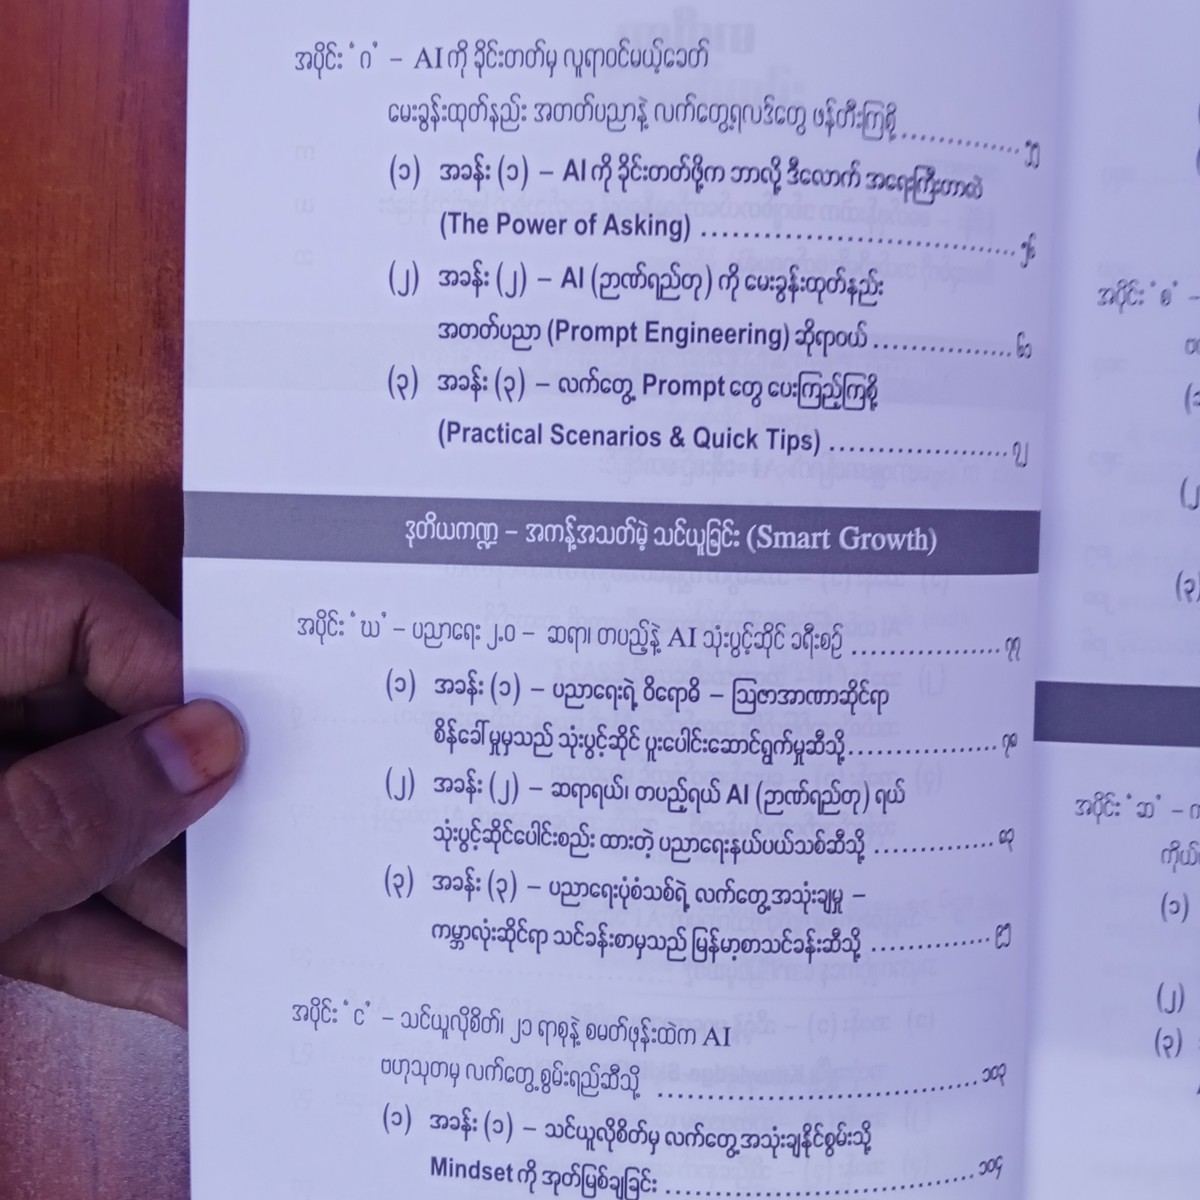 အပိုင်း ‘ဂ’ – AI ကို ခိုင်းတတ်မှ လူရာဝင်မယ့်ခေတ်
မေးခွန်းထုတ်နည်း အတတ်ပညာနဲ့ လက်တွေ့ရလဒ်တွေ ဖန်တီးကြစို့ ................ ၅၅
(၁) အခန်း (၁) – AI ကို ခိုင်းတတ်ဖို့က ဘာလို့ ဒီလောက် အရေးကြီးတာလဲ
(The Power of Asking) ................................ ၅၆
(၂) အခန်း (၂) – AI (ဉာဏ်ရည်တု) ကို မေးခွန်းထုတ်နည်း
အတတ်ပညာ (Prompt Engineering) ဆိုရာဝယ် ................ ၆၁
(၃) အခန်း (၃) – လက်တွေ့ Prompt တွေ ပေးကြည့်ကြစို့
(Practical Scenarios & Quick Tips) .................... ၇၂
ဒုတိယကဏ္ဍ – အကန့်အသတ်မဲ့ သင်ယူခြင်း (Smart Growth)
အပိုင်း ‘ဃ’ – ပညာရေး ၂.၀ – ဆရာ၊ တပည့်နဲ့ AI သုံးပွင့်ဆိုင် ခရီးစဉ် .................. ၇၇
(၁) အခန်း (၁) – ပညာရေးရဲ့ ဝိရောဓိ – ဩဇာအာဏာဆိုင်ရာ
စိန်ခေါ်မှုမှသည် သုံးပွင့်ဆိုင် ပူးပေါင်းဆောင်ရွက်မှုဆီသို့ ..................
(၂) အခန်း (၂) – ဆရာရယ်၊ တပည့်ရယ် AI (ဉာဏ်ရည်တု) ရယ်
သုံးပွင့်ဆိုင်ပေါင်းစည်း ထားတဲ့ ပညာရေးနယ်ပယ်သစ်ဆီသို့ ............... ၈၃
(၃) အခန်း (၃) – ပညာရေးပုံစံသစ်ရဲ့ လက်တွေ့အသုံးချမှု –
ကမ္ဘာလုံးဆိုင်ရာ သင်ခန်းစာမှသည် မြန်မာ့စာသင်ခန်းဆီသို့ ............... ၉၅
အပိုင်း ‘င’ – သင်ယူလိုစိတ်၊ ၂၁ ရာစုနဲ့ စမတ်ဖုန်းထဲက AI
ဗဟုသုတမှ လက်တွေ့စွမ်းရည်ဆီသို့ ................................ ၁၀၃
(၁) အခန်း (၁) – သင်ယူလိုစိတ်မှ လက်တွေ့အသုံးချနိုင်စွမ်းသို့
Mindset ကို အုတ်မြစ်ချခြင်း ................................ ၁၀၄
အပိုင်း ‘စ’ –
(၃)
အပိုင်း ‘ဆ’ –
(၁)
(၂)
(၃)